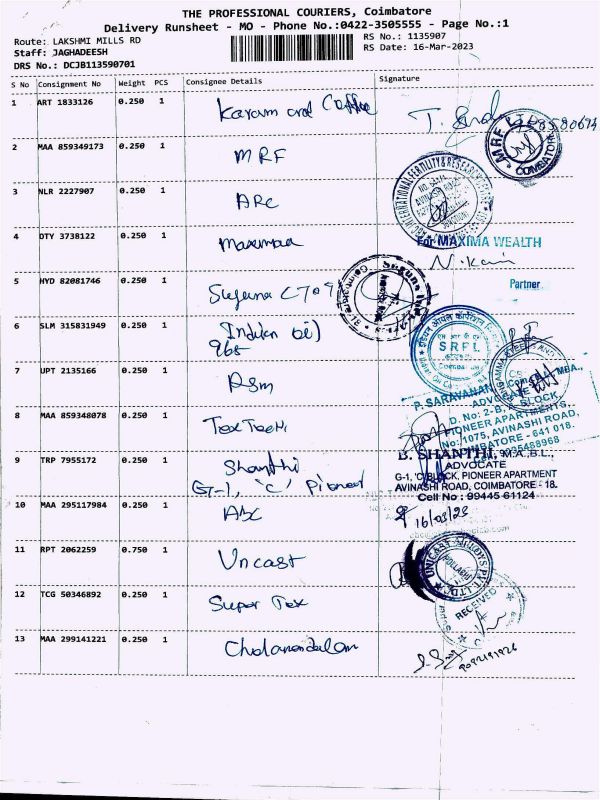 THE PROFESSIONAL COURIERS, Coimbatore
Delivery Runsheet - MO - Phone No.:0422-3505555 - Page No.:1
Route: LAKSHMI MILLS RD
RS No.: 1135907
Staff: JAGHADEESH
RS Date: 16-Mar-2023
DRS No.: DCJB113590701
S No Consignment No Weight PCS Consignee Details Signature
1 ART 1833126 0.250 1 Karam and Coffee
MRF
COIMBATORE
2 MAA 859349173 0.250 1 MRF
3 NLR 2227907 0.250 1 ARC
4 DTY 3738122 0.250 1 Maximaa
For MAXIMA WEALTH
N. Kani
Partner
5 HYD 82081746 0.250 1 Suguna
6 SLM 315831949 0.250 1 Indian oil
965
SRFL
7 UPT 2135166 0.250 1
P. SARAVANAN
ADVOCATE
D. No: 2-B, BLOCK,
PIONEER APARTMENTS,
No: 1075, AVINASHI ROAD,
COIMBATORE - 641 018.
8 MAA 859348078 0.250 1 Tex Tech
9 TRP 7955172 0.250 1 Shanthi
G-1, 'C' Pioneer
B. SHANTHI, M.A.,B.L.,
ADVOCATE
G-1, 'C' BLOCK, PIONEER APARTMENT
AVINASHI ROAD, COIMBATORE - 18.
Cell No : 99445 61124
10 MAA 295117984 0.250 1
16/03/23
11 RPT 2062259 0.750 1 Unicast
UNICAST ALLOYS PVT. LTD.
12 TCG 50346892 0.250 1 Super Tex
RECEIVED
13 MAA 299141221 0.250 1 Cholamandalam